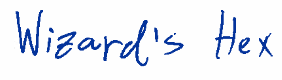 Wizard's Hex